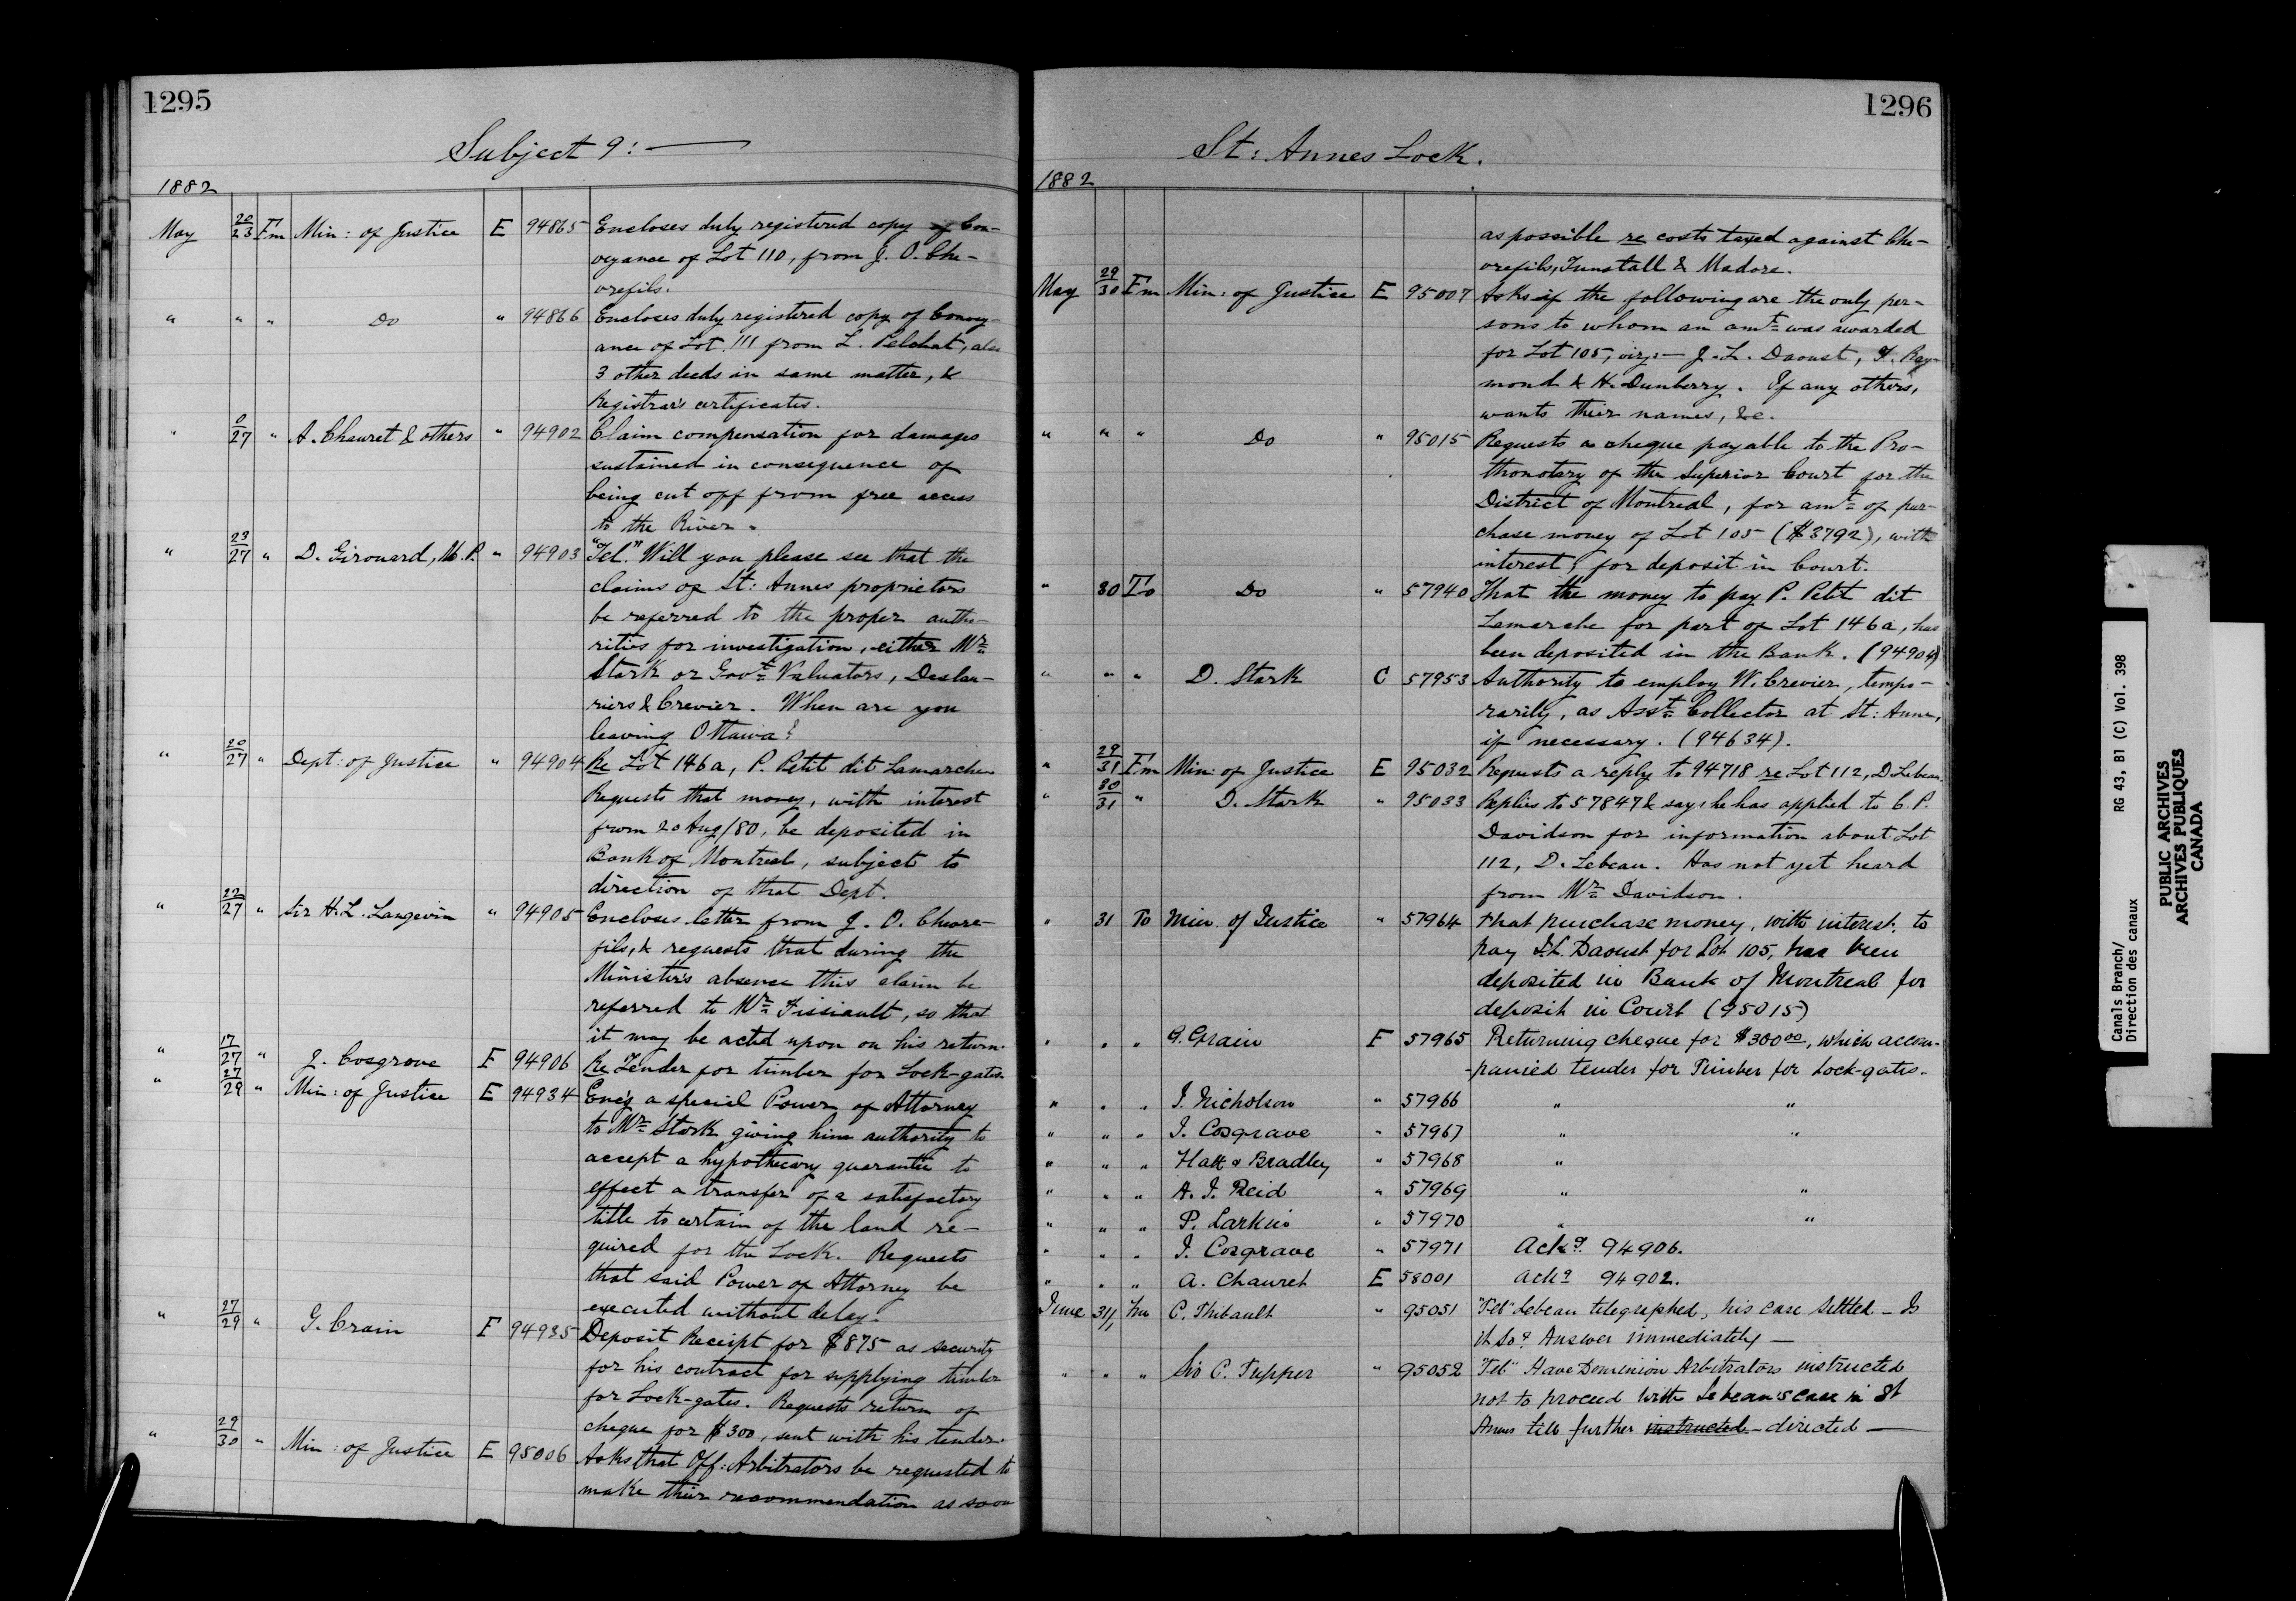 1295
Subject 9:—
1882
May 20/23 Fm Min: of Justice E 94865 Encloses duly registered copy of Con-
veyance of Lot 110, from J. O. Che-
vrefils.
" " " Do " 94866 Encloses duly registered copy of Convey-
ance of Lot 111 from L. Pelchat, also
3 other deeds in same matter, &
Registrar's certificates.
" 0/27 " A. Chauret & others " 94902 Claim compensation for damages
sustained in consequence of
being cut off from free access
to the River.
" 23/27 " D. Girouard, M.P. " 94903 "Tel". Will you please see that the
claims of St: Annes proprietors
be referred to the proper autho-
rities for investigation, either Mr.
Stark or Govt. Valuators, Deslau-
riers & Crevier. When are you
leaving Ottawa?
" 20/27 " Dept: of Justice " 94904 Re Lot 146a, P. Petit dit Lamarche
Requests that money, with interest
from 20 Aug/80, be deposited in
Bank of Montreal, subject to
direction of that Dept.
" 22/27 " Sir H. L. Langevin " 94905 Encloses letter from J. O. Chevre-
fils, & requests that during the
Minister's absence this claim be
referred to Mr. Fissiault, so that
it may be acted upon on his return.
" 17/27 " J. Cosgrove F 94906 Re Tender for timber for Lock-gates.
" 27/29 " Min: of Justice E 94934 Enc'g a special Power of Attorney
to Mr. Stark giving him authority to
accept a hypothecary guarantee to
effect a transfer of a satisfactory
title to certain of the land re-
quired for the Lock. Requests
that said Power of Attorney be
executed without delay.
" 27/29 " G. Crain F 94935 Deposit Receipt for $875 as security
for his contract for supplying timber
for Lock-gates. Requests return of
cheque for $300, sent with his tender.
" 29/30 " Min: of Justice E 95006 Asks that Off: Arbitrators be requested to
make their recommendation as soon
1296
St: Annes Lock.
1882
as possible re costs taxed against Che-
vrefils, Tunstall & Madore.
May 29/30 Fm Min: of Justice E 95007 Asks if the following are the only per-
sons to whom an amt. was awarded
for Lot 105, viz:— J. L. Daoust, F. Ray-
mond & H. Dunberry. If any others,
wants their names, &c.
" " " Do " 95015 Requests a cheque payable to the Pro-
thonotary of the Superior Court for the
District of Montreal, for amt. of pur-
chase money of Lot 105 ($3792), with
interest, for deposit in Court.
" 30 To Do " 57940 That the money to pay P. Petit dit
Lamarche for part of Lot 146a, has
been deposited in the Bank. (94904)
" " " D. Stark C 57953 Authority to employ W. Crevier, tempo-
rarily, as Asst. Collector at St: Anne,
if necessary. (94634).
" 29/31 Fm Min: of Justice E 95032 Requests a reply to 94718 re Lot 112, D. Lebeau.
" 30/31 " D. Stark " 95033 Replies to 57847 & says he has applied to C. P.
Davidson for information about Lot
112, D. Lebeau. Has not yet heard
from Mr. Davidson.
" 31 To Min. of Justice " 57964 that purchase money, with interest, to
pay J. L. Daoust for Lot 105, has been
deposited in Bank of Montreal for
deposit in Court (95015)
" " " G. Grain F 57965 Returning cheque for $300.00, which accom-
-panied tender for Timber for Lock-gates.
" " " J. Nicholson " 57966 " "
" " " J. Cosgrave " 57967 " "
" " " Hatt & Bradley " 57968 "
" " " A. J. Reid " 57969 " "
" " " P. Larkin " 57970 " "
" " " J. Cosgrave " 57971 Ackg. 94906.
" " " A. Chauret E 58001 Ackg. 94902.
June 31/1 Fm C. Thibault " 95051 "Tel" Lebeau telegraphed, his case settled – Is
it so? Answer immediately —
" " " Sir C. Tupper " 95052 "Tel" Have Dominion Arbitrators instructed
not to proceed with Lebeau's case in St
Annes till further instructed – directed —
Canals Branch/
Direction des canaux
RG 43, B1 (C) Vol. 398
PUBLIC ARCHIVES
ARCHIVES PUBLIQUES
CANADA